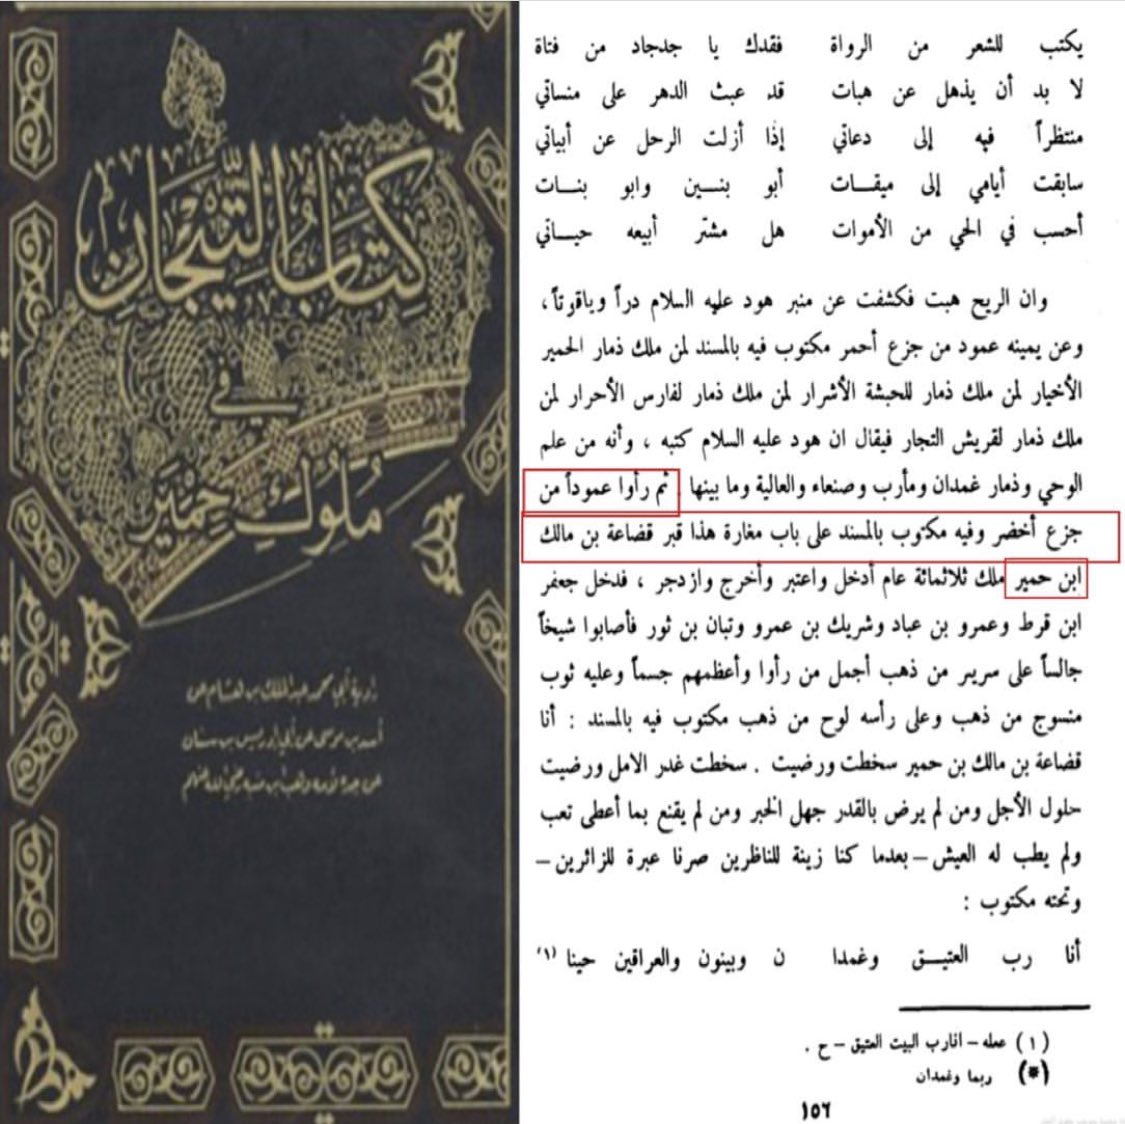 كِتَابُ التِّيجَان
في
مُلُوكِ حِمْيَر
يكتب للشعر من الرواة فقدك يا جدجاد من فتاة
لا بد أن يذهل عن هبات قد عبث الدهر على منساتي
منتظراً فيه إلى دعاتي إذا أزلت الرحل عن أبياتي
سابقت أيامي إلى ميقات أبو بنين وابو بنات
أحسب في الحي من الأموات هل مشتر أبيعه حياتي
وان الريح هبت فكشفت عن منبر هود عليه السلام دراً وياقوتاً،
وعن يمينه عمود من جزع أحمر مكتوب فيه بالمسند لمن ملك ذمار الحمير
الأخيار لمن ملك ذمار للحبشة الأشرار لمن ملك ذمار لفارس الأحرار لمن
ملك ذمار لقريش التجار فيقال ان هود عليه السلام كتبه ، وأنه من علم
الوحي وذمار غمدان ومأرب وصنعاء والعالية وما بينها . ثم رأوا عموداً من
جزع أخضر وفيه مكتوب بالمسند على باب مغارة هذا قبر قضاعة بن مالك
ابن حمير ملك ثلاثمائة عام أدخل واعتبر وأخرج وازدجر ، فدخل جعفر
ابن قرط وعمرو بن عباد وشريك بن عمرو وتبان بن ثور فأصابوا شيخاً
جالساً على سرير من ذهب أجمل من رأوا وأعظمهم جسماً وعليه ثوب
منسوج من ذهب وعلى رأسه لوح من ذهب مكتوب فيه بالمسند : أنا
قضاعة بن مالك بن حمير سخطت ورضيت . سخطت غدر الامل ورضيت
حلول الأجل ومن لم يرض بالقدر جهل الخبر ومن لم يقنع بما أعطى تعب
ولم يطب له العيش – بعدما كنا زينة للناظرين صرنا عبرة للزائرين –
وتحته مكتوب :
أنا رب العتيق وغمدا ن وبينون والعراقين حينا (١)
(١) عله – انارب البيت العتيق – ح .
(*) ربما وغمدان
١٥٦